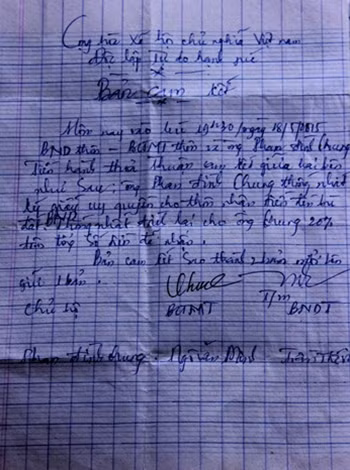 Cộng hòa Xã hội chủ nghĩa Việt nam
Độc lập Tự do hạnh phúc
BẢN CAM KẾT
Hôm nay vào lúc 19h30/ngày 18/5/2015
BND thôn – BCTMT thôn và ông Phan đình Chung
Tiến hành thoả thuận cam kết giữa hai bên
như Sau: ông Phan đình Chung thống nhất
ký giấy uỷ quyền cho thôn nhận tiền đền bù
đất BND thống nhất lại cho ông Chung 20%
trên tổng số tiền đã nhận.
Bản cam kết Sao thành bản mỗi bên
giữ 1 bản.
Chủ hộ BCTMT T/m BNDT
Phan đình Chung. Nguyễn Minh Trần